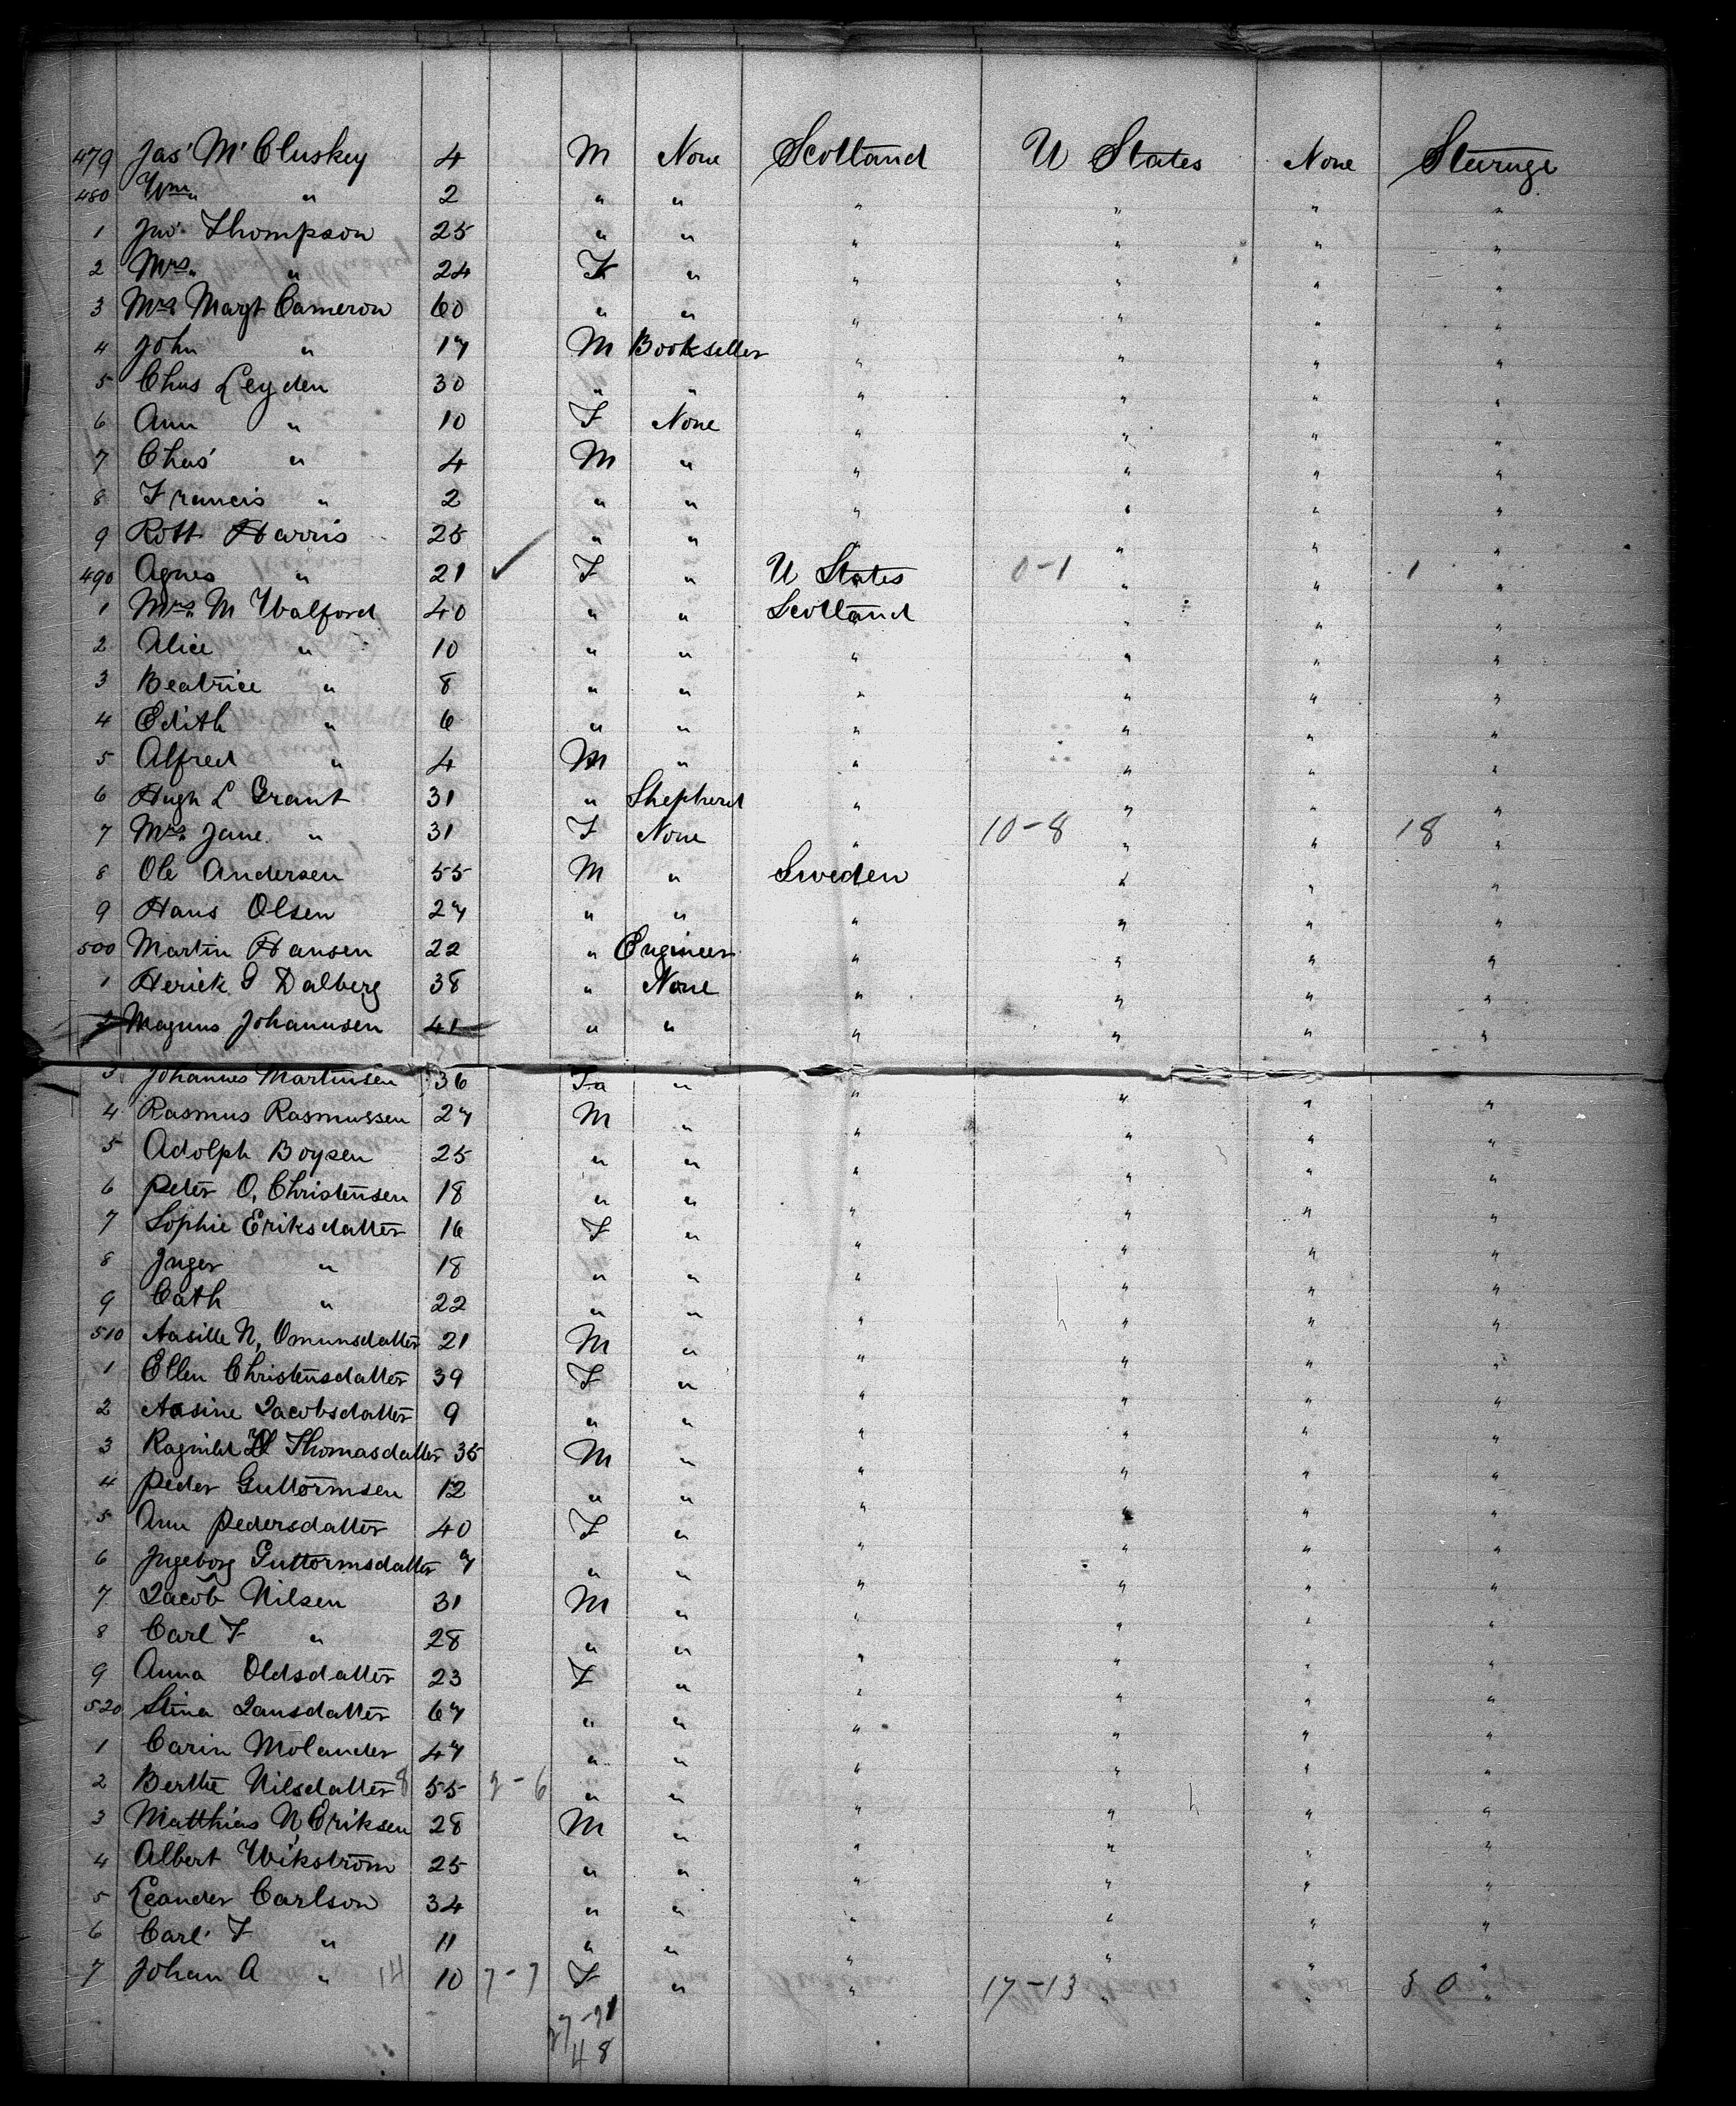 479 Jas' Mc Cluskey 4 M None Scotland U States None Steerage
480 Wm " 2 " " " " " "
1 Jno. Thompson 25 " " " " " "
2 Mrs. " 24 F " " " " "
3 Mrs Margt Cameron 60 " " " " " "
4 John " 17 M Bookseller " " " "
5 Chas Leyden 30 " " " " " "
6 Ann " 10 F None " " " "
7 Chas' " 4 M " " " " "
8 Francis " 2 " " " " " "
9 Robt Harris 25 " " " " " "
490 Agnes " 21 ✓ F " U States 0-1 " " 1 "
1 Mrs. M Walford 40 " " Scotland " " "
2 Alice " 10 " " " " " "
3 Beatrice " 8 " " " " " "
4 Edith " 6 " " " " " "
5 Alfred " 4 M " " " " "
6 Hugh L Grant 31 " Shepherd " " " "
7 Mrs. Jane " 31 F None " 10-8 " " 18 "
8 Ole Andersen 55 M " Sweden " " "
9 Hans Olsen 27 " " " " " "
500 Martin Hansen 22 " Engineer " " " "
1 Herick G Dalberg 38 " None " " " "
2 Magnus Johannsen 41 " " " " " "
3 Johannes Martinsen 36 " " " " "
4 Rasmus Rasmussen 27 M " " " " "
5 Adolph Boysen 25 " " " " " "
6 Peter O, Christensen 18 " " " " " "
7 Sophie Eriksdatter 16 F " " " " "
8 Inger " 18 " " " " " "
9 Cath " 22 " " " " " "
510 Aasille N, Omunsdatter 21 M " " " " "
1 Ellen Christensdatter 39 F " " " " "
2 Aasine Jacobsdatter 9 " " " " " "
3 Ragnild Thomasdatter 35 M " " " " "
4 Peder Guttormsen 12 " " " " " "
5 Ann Pedersdatter 40 F " " " " "
6 Ingeborg Guttormsdatter 7 " " " " " "
7 Jacob Nilsen 31 M " " " " "
8 Carl F " 28 " " " " " "
9 Anna Oldsdatter 23 F " " " " "
520 Stina Jansdatter 67 " " " " " "
1 Carin Molander 47 " " " " " "
2 Berthe Nilsdatter 8 55 2-6 " " " " " "
3 Matthias N, Eriksen 28 M " " " " "
4 Albert Wikström 25 " " " " " "
5 Leander Carlson 34 " " " " " "
6 Carl F " 11 " " " " " "
7 Johan A " 14 10 7-7 F " " 17-13 " " 30 "
27-21
48